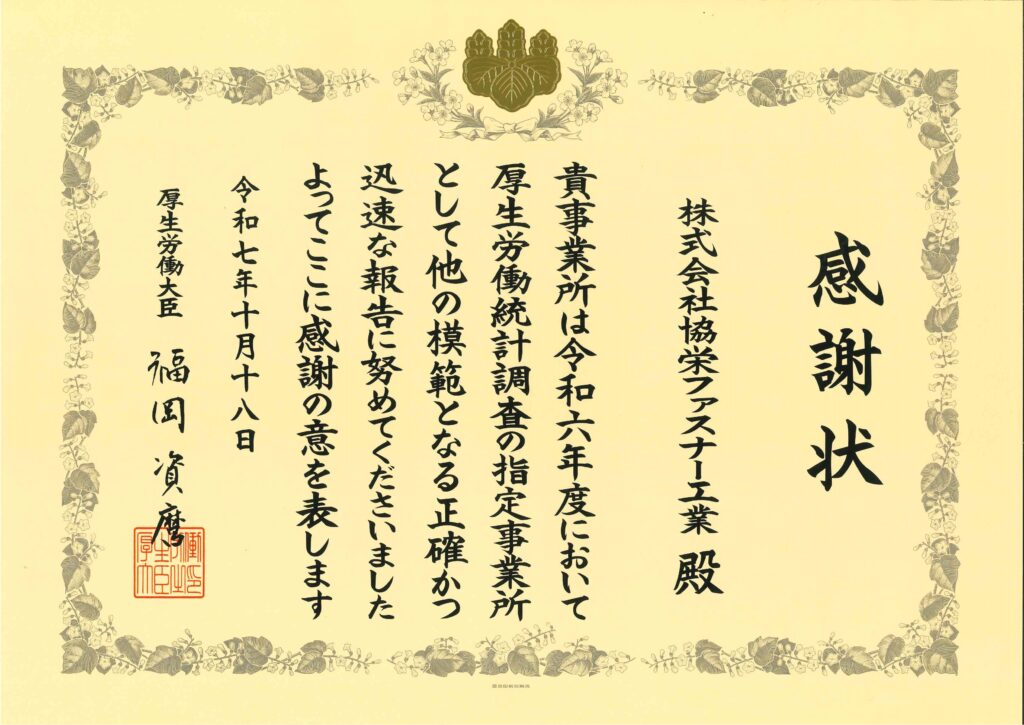 感謝状
株式会社協栄ファスナー工業 殿
貴事業所は令和六年度において
厚生労働統計調査の指定事業所
として他の模範となる正確かつ
迅速な報告に努めてくださいました
よってここに感謝の意を表します
令和七年十月十八日
厚生労働大臣 福岡資麿